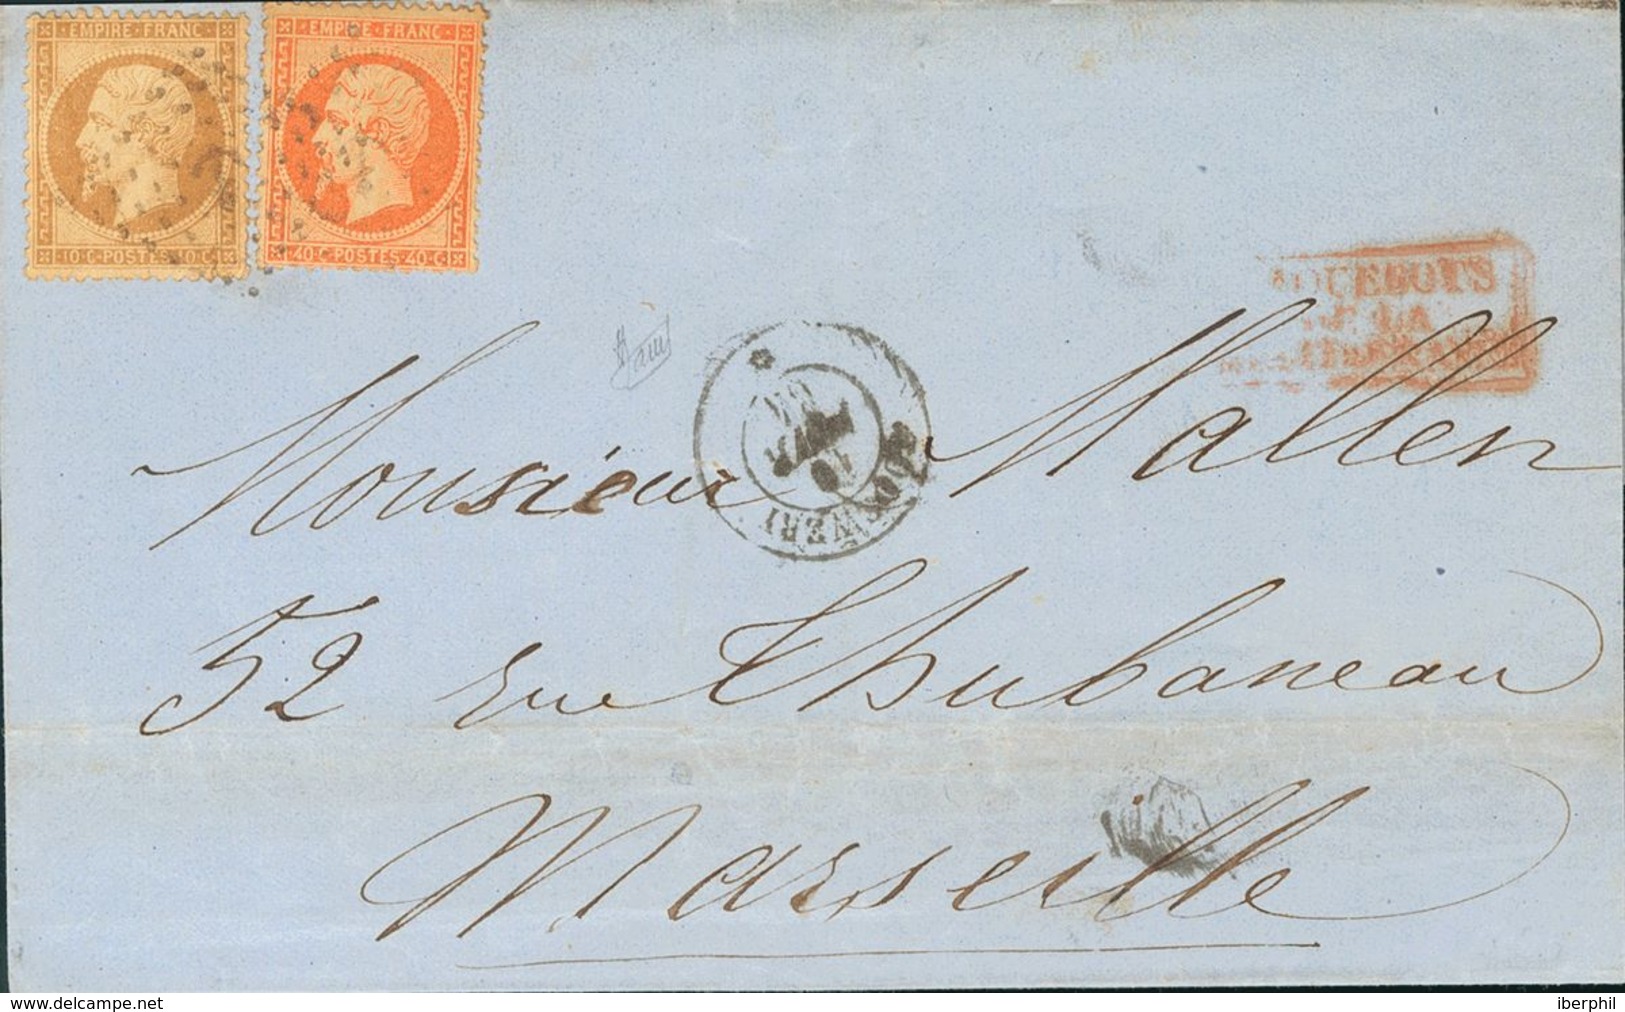 EMPIRE FRANC
10·C·POSTES·10·C
EMPIRE·FRANC
40·C·POSTES·40·C
DE LA
Monsieur Mallen
52 rue Thubaneau
Marseille
© delcampe.net
iberphil